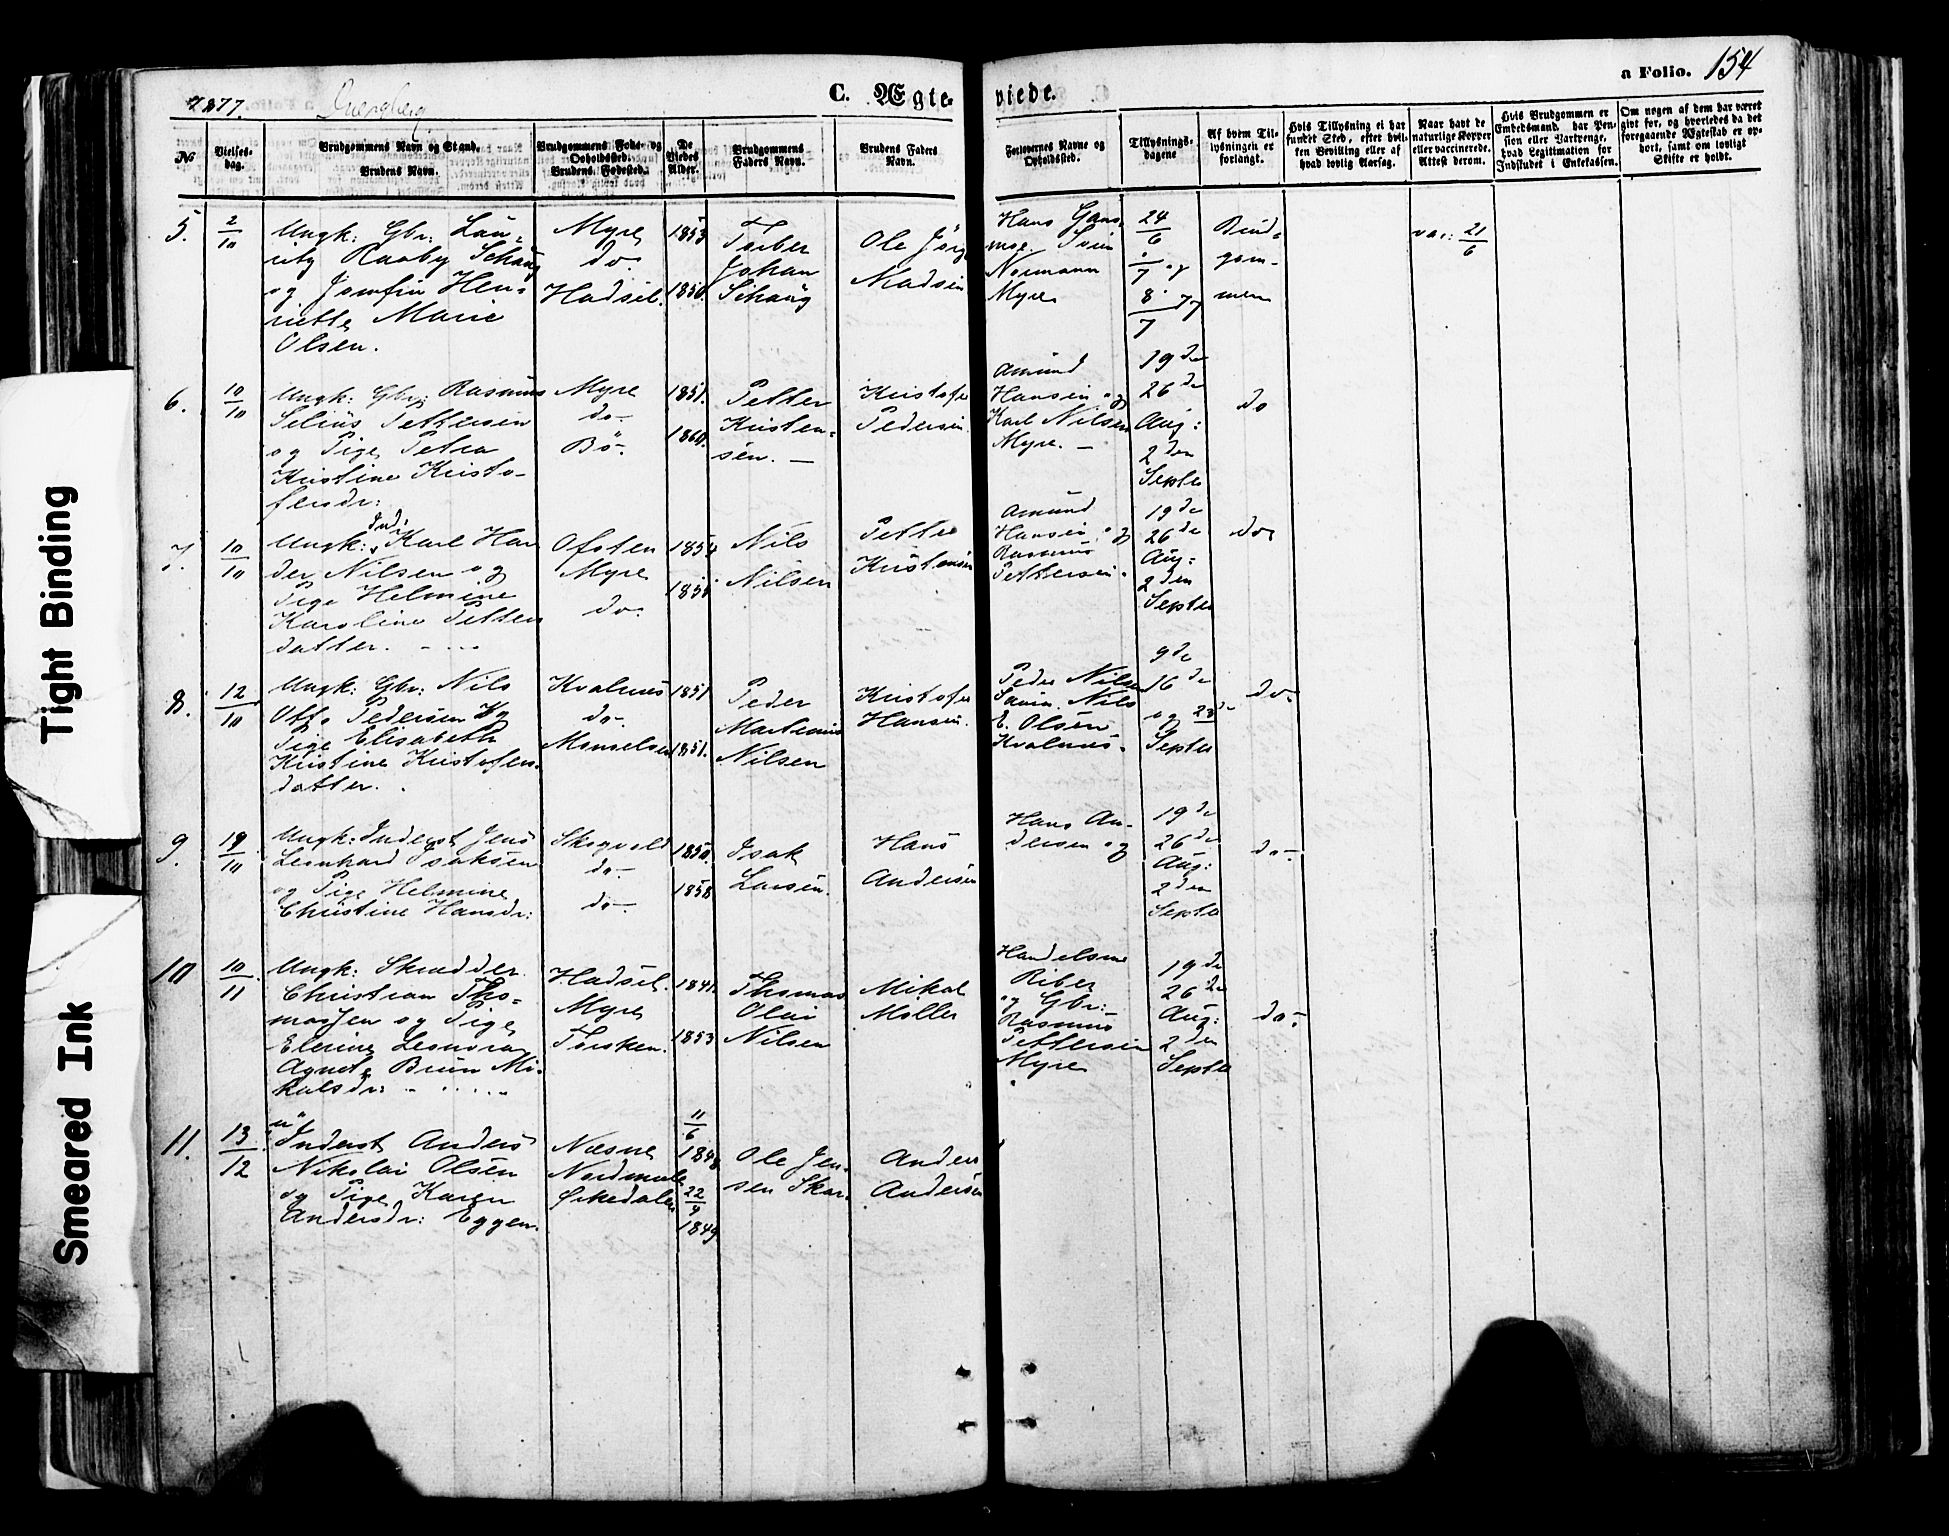 1877.
C. Ægte-
viede.
a Folio. 154
No
Vielses-
dag.
Brudgommens Navn og Stand.
Brudens Navn.
Brudgommens Føde- og
Opholdssted.
Brudens Fødested.
De
Viedes
Alder.
Brudgommens
Faders Navn.
Brudens Faders
Navn.
Forlovernes Navne og
Opholdssted.
Tillysnings-
dagene
Af hvem Til-
lysningen er
forlangt.
Hvis Tillysning ei har
fundet Sted, efter hvil-
ken Bevilling eller af
hvad lovlig Aarsag.
Naar havt de
naturlige Kopper
eller vaccinerede.
Attest derom.
Hvis Brudgommen er
Embedsmand, har Pen-
sion eller Vartpenge,
hvad Legitimation for
Indskudet i Enkekassen.
Om nogen af dem har været
gift før, og hvorledes da det
foregaaende Ægteskab er op-
hørt, samt om lovligt
Skifte er holdt.
5.
2/10
Ungk: Gbr: Lau-
ritz Raaby Schaug
og Jomfru Hen-
riette Marie
Olsen.
Myre
do.
Hadsel.
1853
1850.
Torber
Johan
Schaug
Ole Jørg
Madsen
Hans
Normann
Myre
24/6
/7 og
8/7
Brud-
gom-
men
vac: 21/6
6.
10/10
Ungk: Gbr: Rasmus
Selius Pettersen
og Pige Petra
Kristine Kristo-
fersdr:
Myre
do-
Bö-
1851.
1860.
Petter
Kristen-
sen. -
Kristofer
Pedersen
Amund
Hansen og
Karl Nilsen
Myre. -
19de
26de
Aug:
2den
Septe
do
7.
10/10
Ind:
Ungk: Karl Han
der Nilsen og
Pige Helmine
Karoline Petters
datter. - ...
Ofoten
Myre
do.
1854
1855
Nils
Nilsen
Petter
Kristensen
Amund
Hansen og
Rasmus
Pettersen.
19de
26de
Aug:
2den
Septe
do
8.
12/10
Ungk: Gbr: Nils
Pedersen
Pige Elisabeth
Kristine Kristofers-
datter.
Kvalnes
do-
Maaselven
1851
1851.
Peder
Martinius
Nilsen
Kristofer
Hansen.
Peder Nilsen
Nils
E. Olsen
Kvalnes.
9de
16de
og 23de
Septe
do-
9.
19/10
Ungk: Inderst Jens
Leonhard Isaksen
og Pige Helmine
Christine Hansdr:
Skogvold
do-
do-
1850.
1858
Isak
Larsen.
Hans
Andersen
Hans An-
dersen og
19de
26de
Aug:
2den
Septe
do-
10
10/11
Ungk: Skrædder
Christian Tho-
massen og Pige
Elerine Leonora
Agnete Bruun Mi-
kalsdr: - ....
Hadsel.
Myre
Torsken.
1841.
1853
Thomas
Olai
Nilsen
Mikal
Møller
Handelsm
Riber
og Gbr:
Rasmus
Pettersen
Myre
19de
26de
Aug:
2den
Septe
do-
11.
13/12
u
Inderst Anders
Nikolai Olsen
og Pige Karen
Andersdr: Eggen.
Næsne
Nordmøre
Orkedalen
11/6
1848
22/4
1849
Ole Jen-
sen Skar-
Anders
Andersen
Tight Binding
Smeared Ink